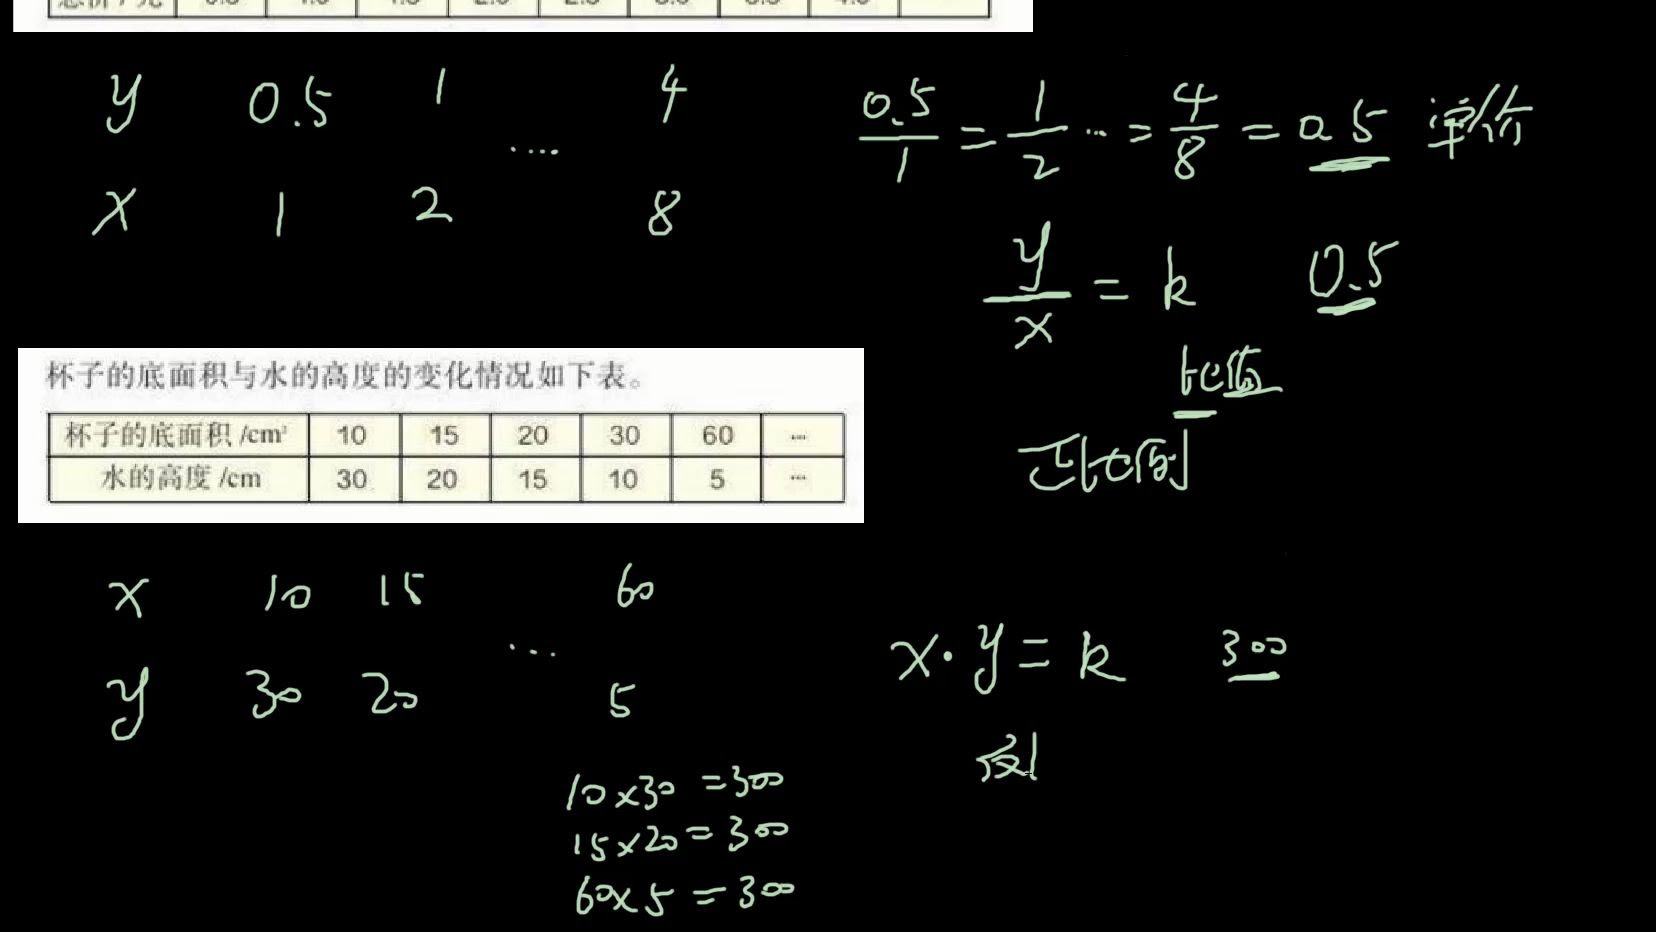 y 0.5 1 .... 4
x 1 2 8
0.5/1 = 1/2 ... = 4/8 = 0.5 单价
y/x = k 0.5
比值
正比例
杯子的底面积与水的高度的变化情况如下表。
杯子的底面积/cm² 10 15 20 30 60 ...
水的高度/cm 30 20 15 10 5 ...
x 10 15 ... 60
y 30 20 5
x·y=k 300
10×30=300
15×20=300
60×5=300